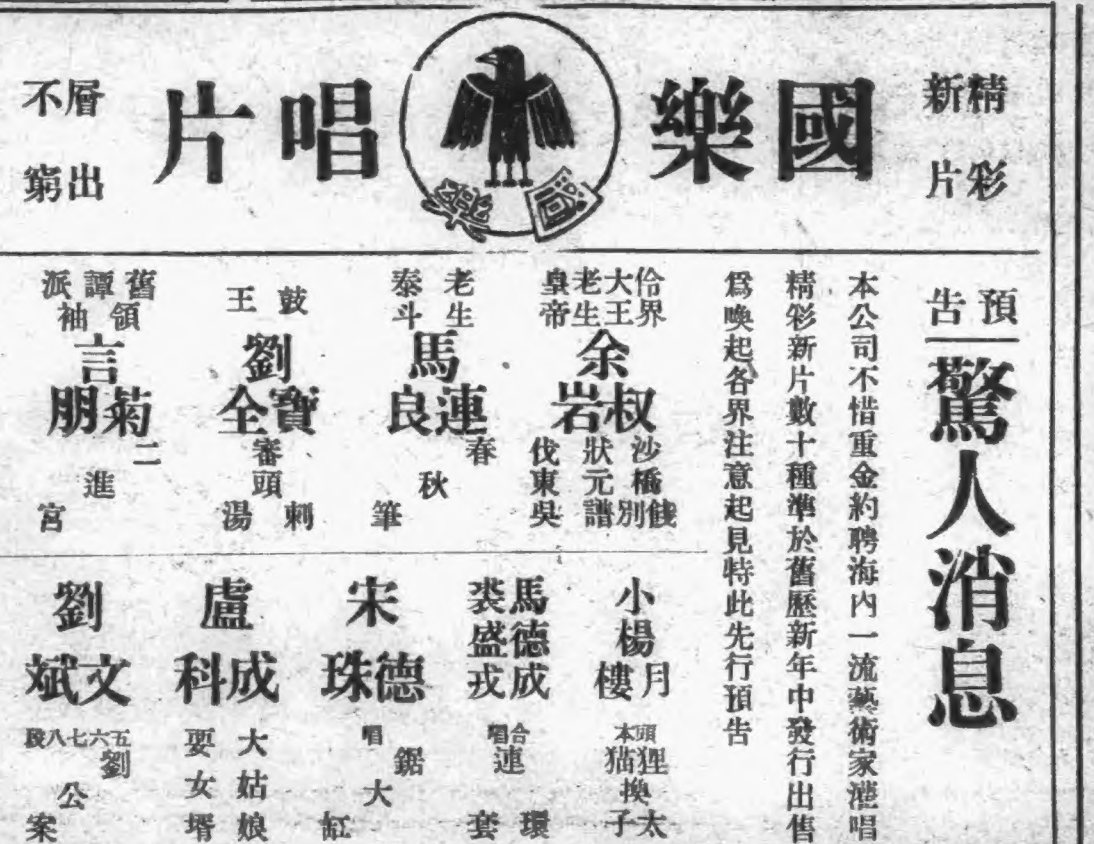 精彩
新片
國樂唱片
國樂
層出
不窮
預告
驚人消息
本公司不惜重金約聘海內一流藝術家灌唱
精彩新片數十種準於舊歷新年中發行出售
爲喚起各界注意起見特此先行預告
伶界
大王
老生
皇帝
余叔岩
沙橋餞別
狀元譜
伐東吳
老生
泰斗
馬連良
春秋筆
鼓王
劉寶全
審頭刺湯
舊譚派
領袖
言菊朋
二進宮
小楊月樓
頭本
狸猫換太子
馬德成
裘盛戎
合唱
連環套
宋德珠
唱
鋸大缸
盧成科
大姑娘
要女壻
劉文斌
五六七八段
劉公案